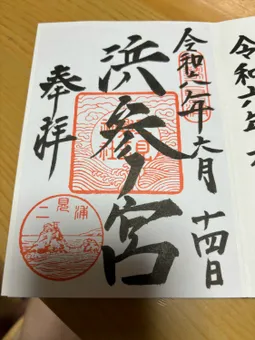 令和六年六月
十四日
浜参宮
奉拝
二見浦
令和六年